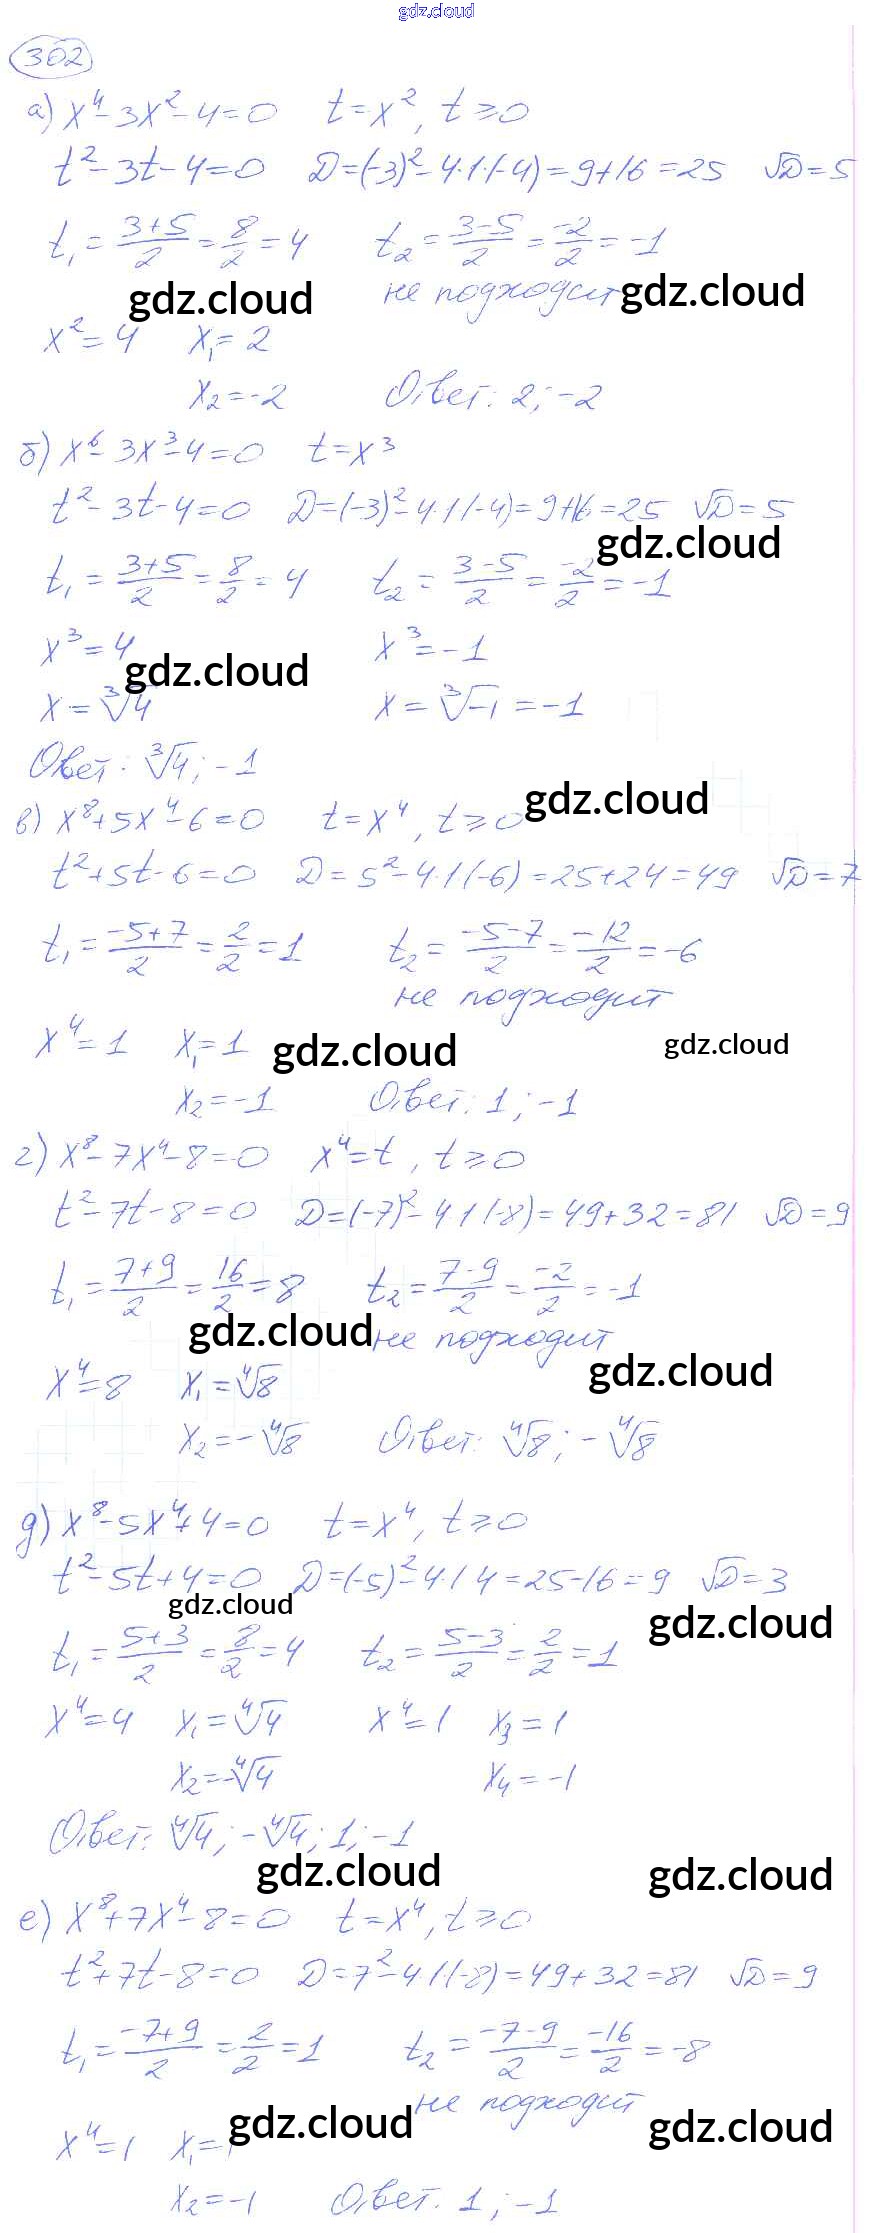 gdz.cloud
302
а) x⁴ - 3x² - 4 = 0   t = x², t ≥ 0
t² - 3t - 4 = 0   D = (-3)² - 4·1·(-4) = 9 + 16 = 25   √D = 5
t₁ = (3+5)/2 = 8/2 = 4   t₂ = (3-5)/2 = -2/2 = -1
не подходит
gdz.cloud gdz.cloud
x² = 4   x₁ = 2
x₂ = -2   Ответ: 2; -2
б) x⁶ - 3x³ - 4 = 0   t = x³
t² - 3t - 4 = 0   D = (-3)² - 4·1·(-4) = 9 + 16 = 25   √D = 5
gdz.cloud
t₁ = (3+5)/2 = 8/2 = 4   t₂ = (3-5)/2 = -2/2 = -1
x³ = 4   x³ = -1
gdz.cloud
x = ³√4   x = ³√-1 = -1
Ответ: ³√4; -1
gdz.cloud
в) x⁸ + 5x⁴ - 6 = 0   t = x⁴, t ≥ 0
t² + 5t - 6 = 0   D = 5² - 4·1·(-6) = 25 + 24 = 49   √D = 7
t₁ = (-5+7)/2 = 2/2 = 1   t₂ = (-5-7)/2 = -12/2 = -6
не подходит
x⁴ = 1   x₁ = 1
gdz.cloud gdz.cloud
x₂ = -1   Ответ: 1; -1
г) x⁸ - 7x⁴ - 8 = 0   x⁴ = t, t ≥ 0
t² - 7t - 8 = 0   D = (-7)² - 4·1·(-8) = 49 + 32 = 81   √D = 9
t₁ = (7+9)/2 = 16/2 = 8   t₂ = (7-9)/2 = -2/2 = -1
gdz.cloud
не подходит
gdz.cloud
x⁴ = 8   x₁ = ⁴√8
x₂ = -⁴√8   Ответ: ⁴√8; -⁴√8
д) x⁸ - 5x⁴ + 4 = 0   t = x⁴, t ≥ 0
t² - 5t + 4 = 0   D = (-5)² - 4·1·4 = 25 - 16 = 9   √D = 3
gdz.cloud gdz.cloud
t₁ = (5+3)/2 = 8/2 = 4   t₂ = (5-3)/2 = 2/2 = 1
x⁴ = 4   x₁ = ⁴√4   x⁴ = 1   x₃ = 1
x₂ = -⁴√4   x₄ = -1
Ответ: ⁴√4; -⁴√4; 1; -1
gdz.cloud gdz.cloud
е) x⁸ + 7x⁴ - 8 = 0   t = x⁴, t ≥ 0
t² + 7t - 8 = 0   D = 7² - 4·1·(-8) = 49 + 32 = 81   √D = 9
t₁ = (-7+9)/2 = 2/2 = 1   t₂ = (-7-9)/2 = -16/2 = -8
не подходит
gdz.cloud gdz.cloud
x⁴ = 1   x₁ = 1
x₂ = -1   Ответ. 1; -1